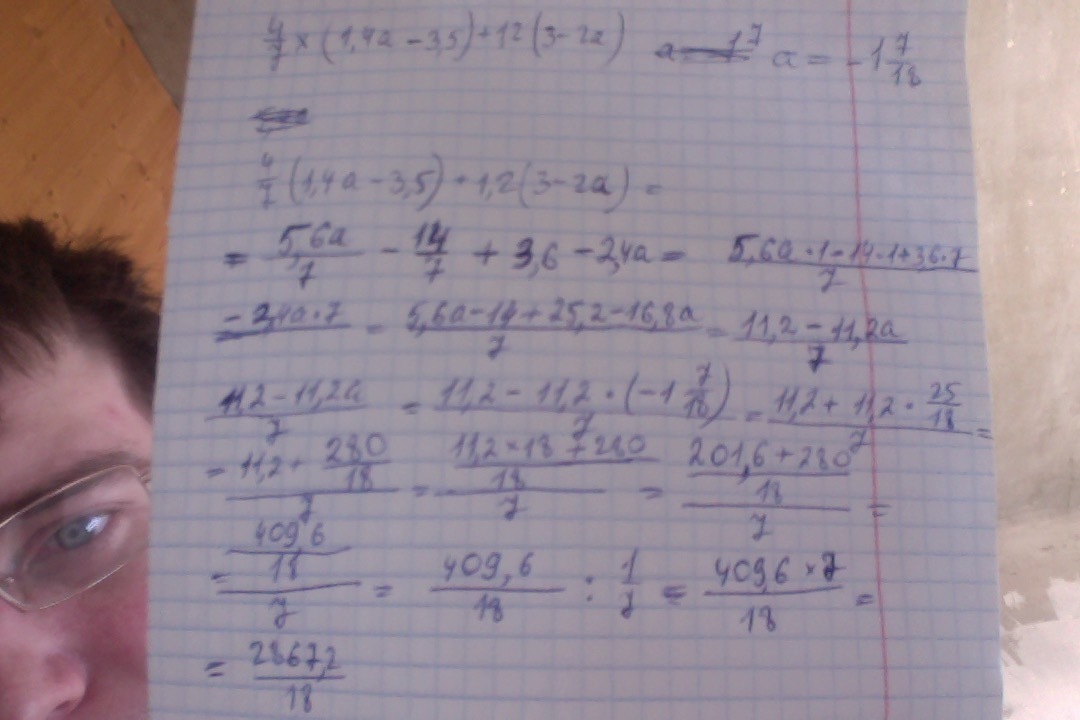 4/7 × (1,4a - 3,5) + 12 (3 - 2a) a = -1 7/18
4/7 (1,4a - 3,5) + 1,2 (3 - 2a) =
= 5,6a/7 - 14/7 + 3,6 - 2,4a = 5,6a·1 - 14·1 + 3,6·7/7
- 2,4a·7 = 5,6a - 14 + 25,2 - 16,8a/7 = 11,2 - 11,2a/7
11,2 - 11,2a/7 = 11,2 - 11,2·(-1 7/18)/7 = 11,2 + 11,2·25/18/7 =
= 11,2 + 280/18/7 = 11,2×18 + 280/18/7 = 201,6 + 280/18/7 =
= 409,6/18/7 = 409,6/18 : 1/7 = 409,6 × 7/18 =
= 2867,2/18